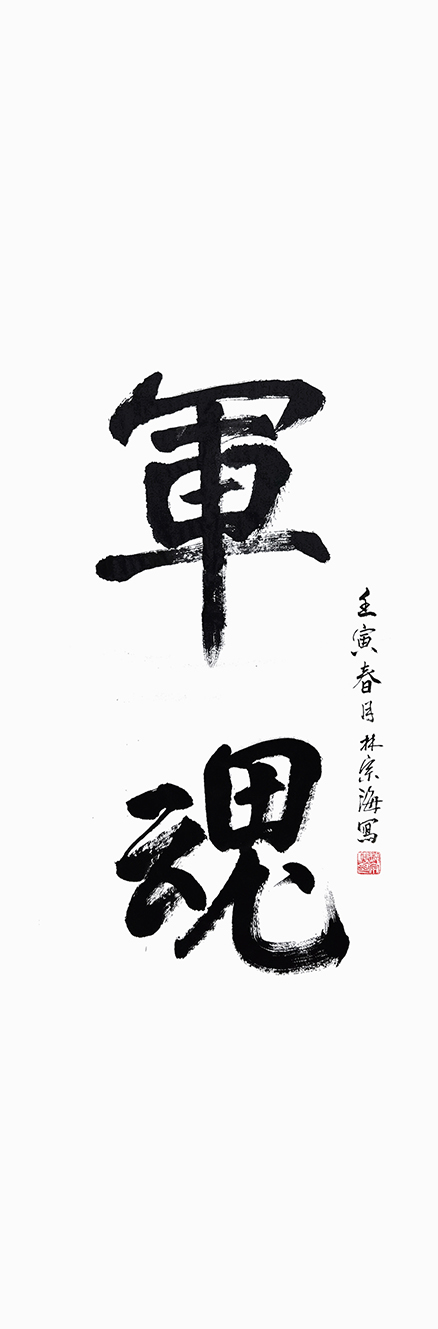 軍魂
壬寅春月林宗海寫